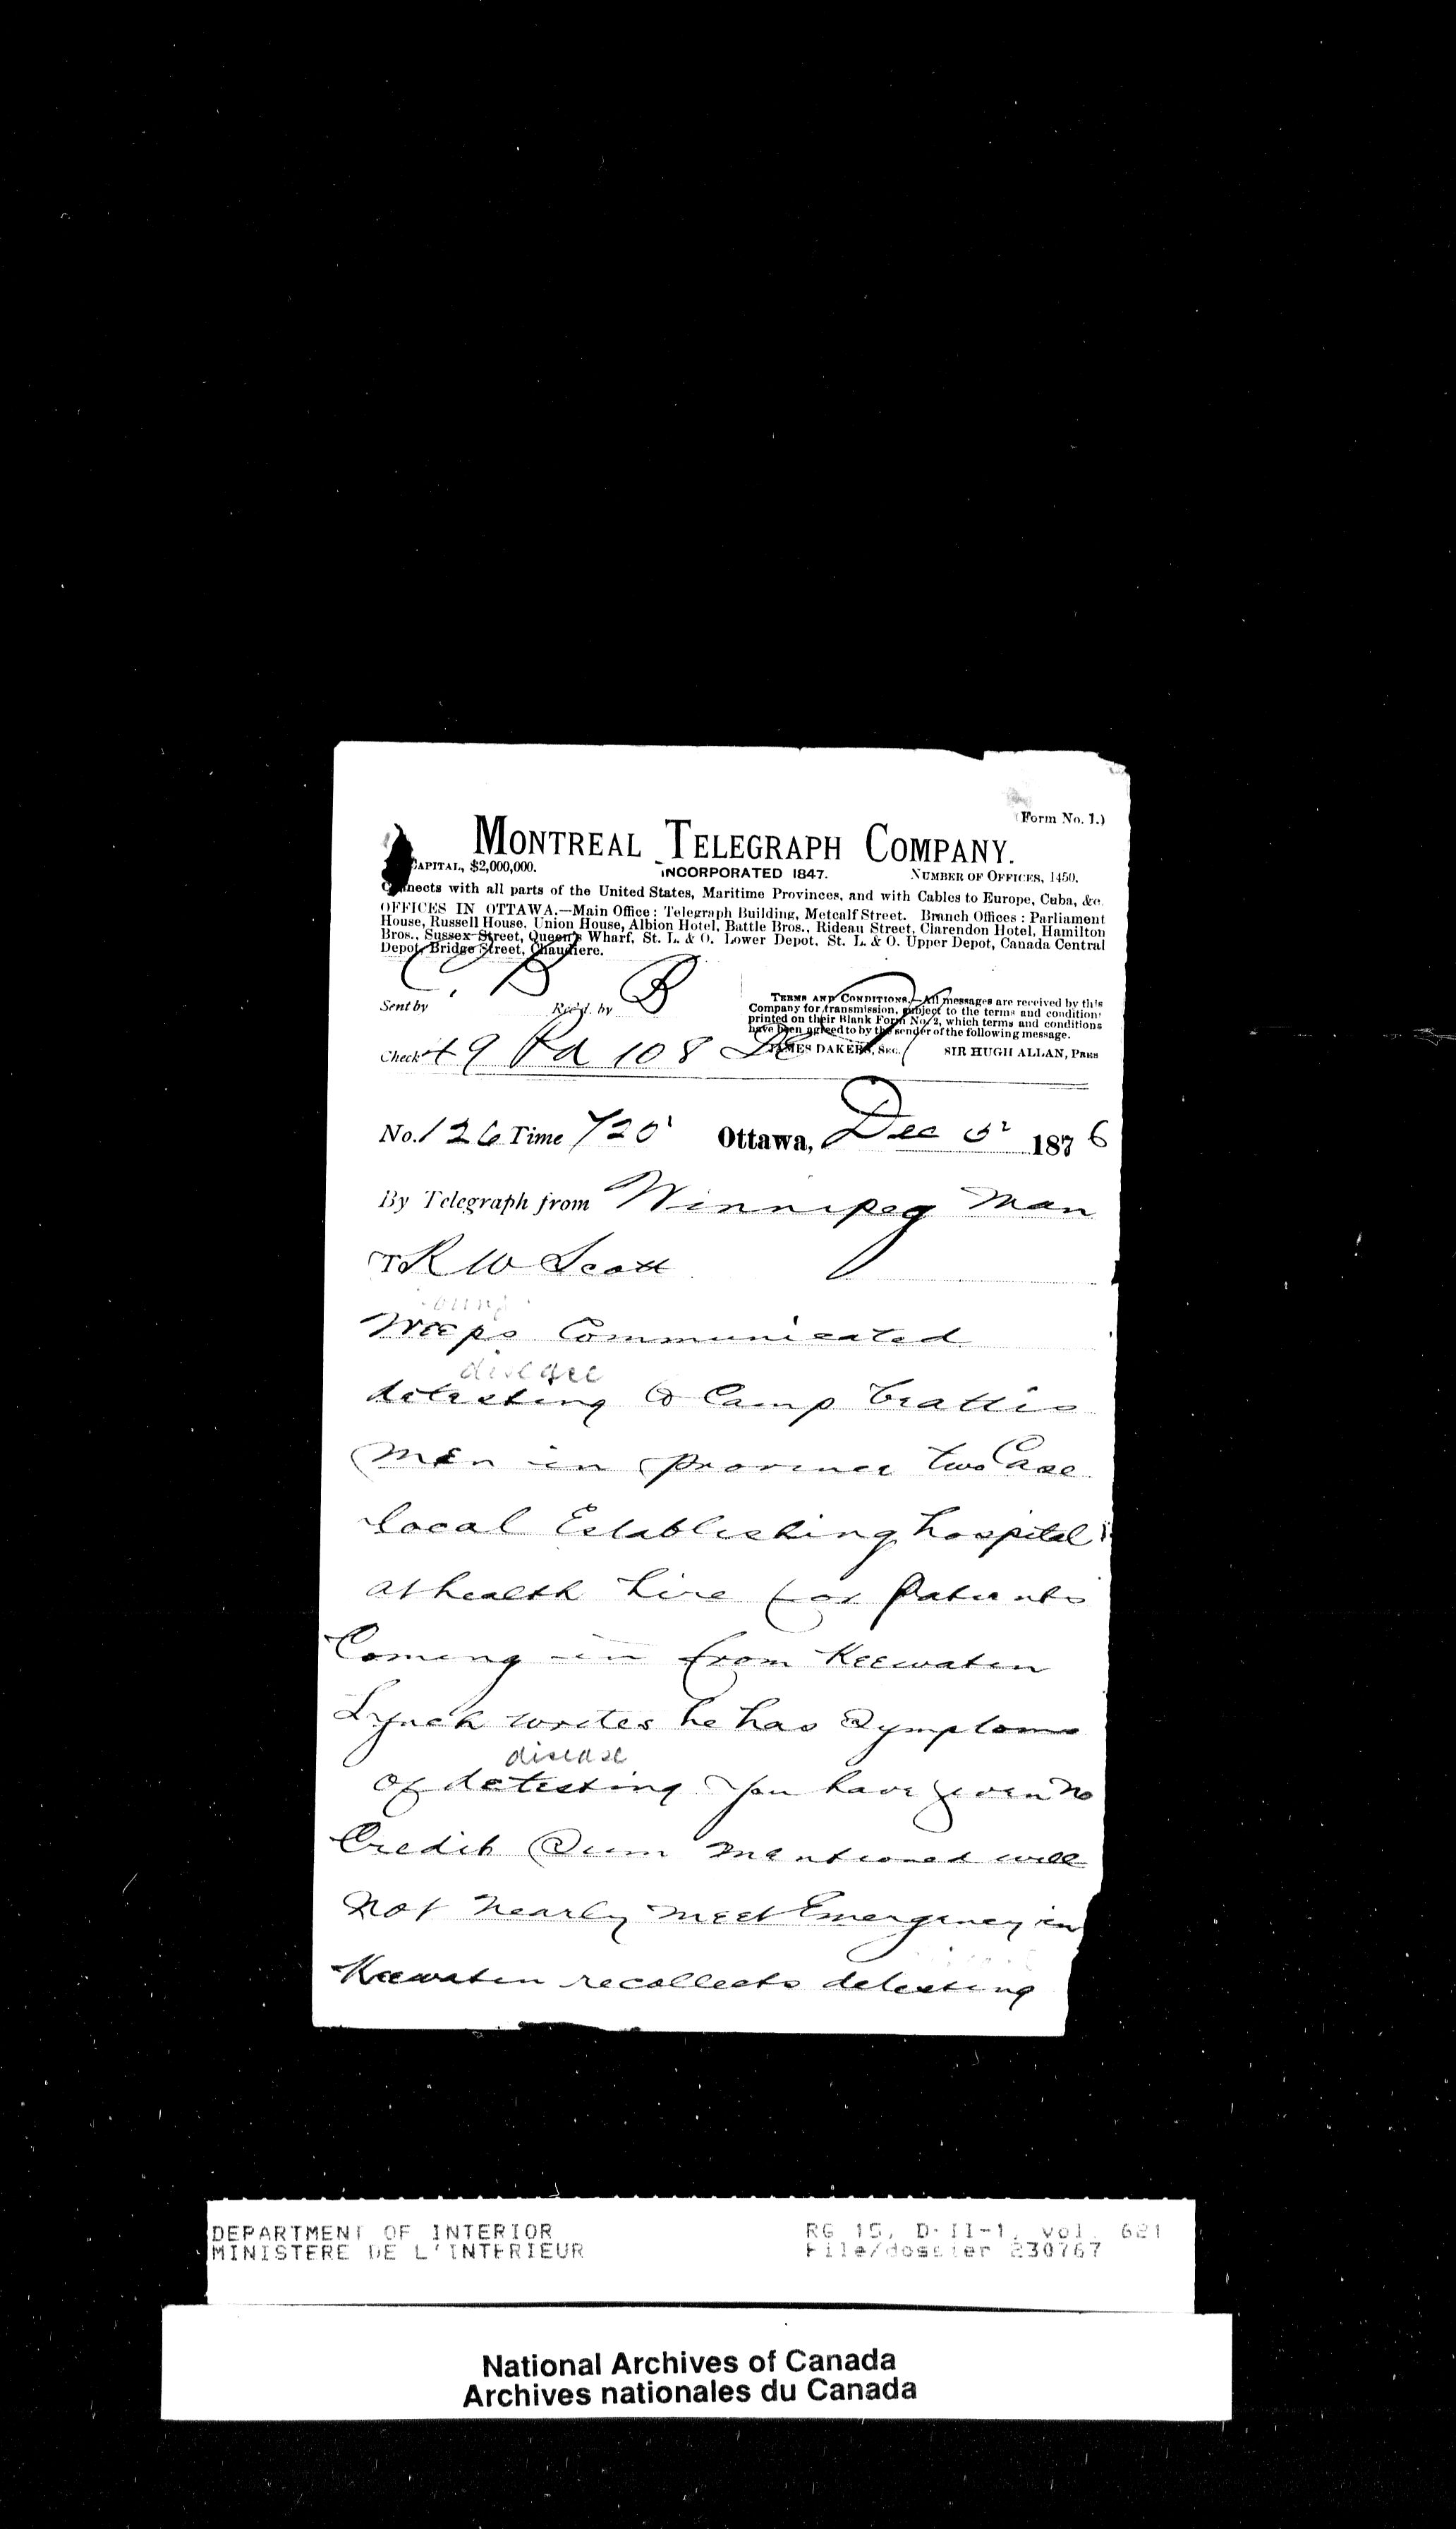 (Form No. 1.)
MONTREAL TELEGRAPH COMPANY.
CAPITAL, $2,000,000. INCORPORATED 1847. NUMBER OF OFFICES, 1450.
Connects with all parts of the United States, Maritime Provinces, and with Cables to Europe, Cuba, &c.
OFFICES IN OTTAWA.—Main Office: Telegraph Building, Metcalf Street. Branch Offices: Parliament
House, Russell House, Union House, Albion Hotel, Battle Bros., Rideau Street, Clarendon Hotel, Hamilton
Bros., Sussex Street, Queen's Wharf, St. L. & O. Lower Depot, St. L. & O. Upper Depot, Canada Central
Depot, Bridge Street, Chaudiere.
TERMS AND CONDITIONS.—All messages are received by this
Company for transmission, subject to the terms and condition
printed on their Blank Form No. 2, which terms and conditions
have been agreed to by the sender of the following message.
JAMES DAKERS, SEC. SIR HUGH ALLAN, PRES
Sent by Rec'd. by B
Check 49 Pd 108 DH
No. 126 Time 720 Ottawa, Dec 5 1876
By Telegraph from Winnipeg Man
To R W Scott
Communicated
disease
detesting Camp
men in province two Case
local Establishing hospital
at health line for patients
Coming in from Keewatin
Lynch writes he has Symptoms
disease
of detesting You have given no
Credit Sum mentioned will
not nearly meet Emergency in
Keewatin recollects detesting
DEPARTMENT OF INTERIOR RG 15, D-II-1, vol. 621
MINISTERE DE L'INTERIEUR File/dossier 230767
National Archives of Canada
Archives nationales du Canada